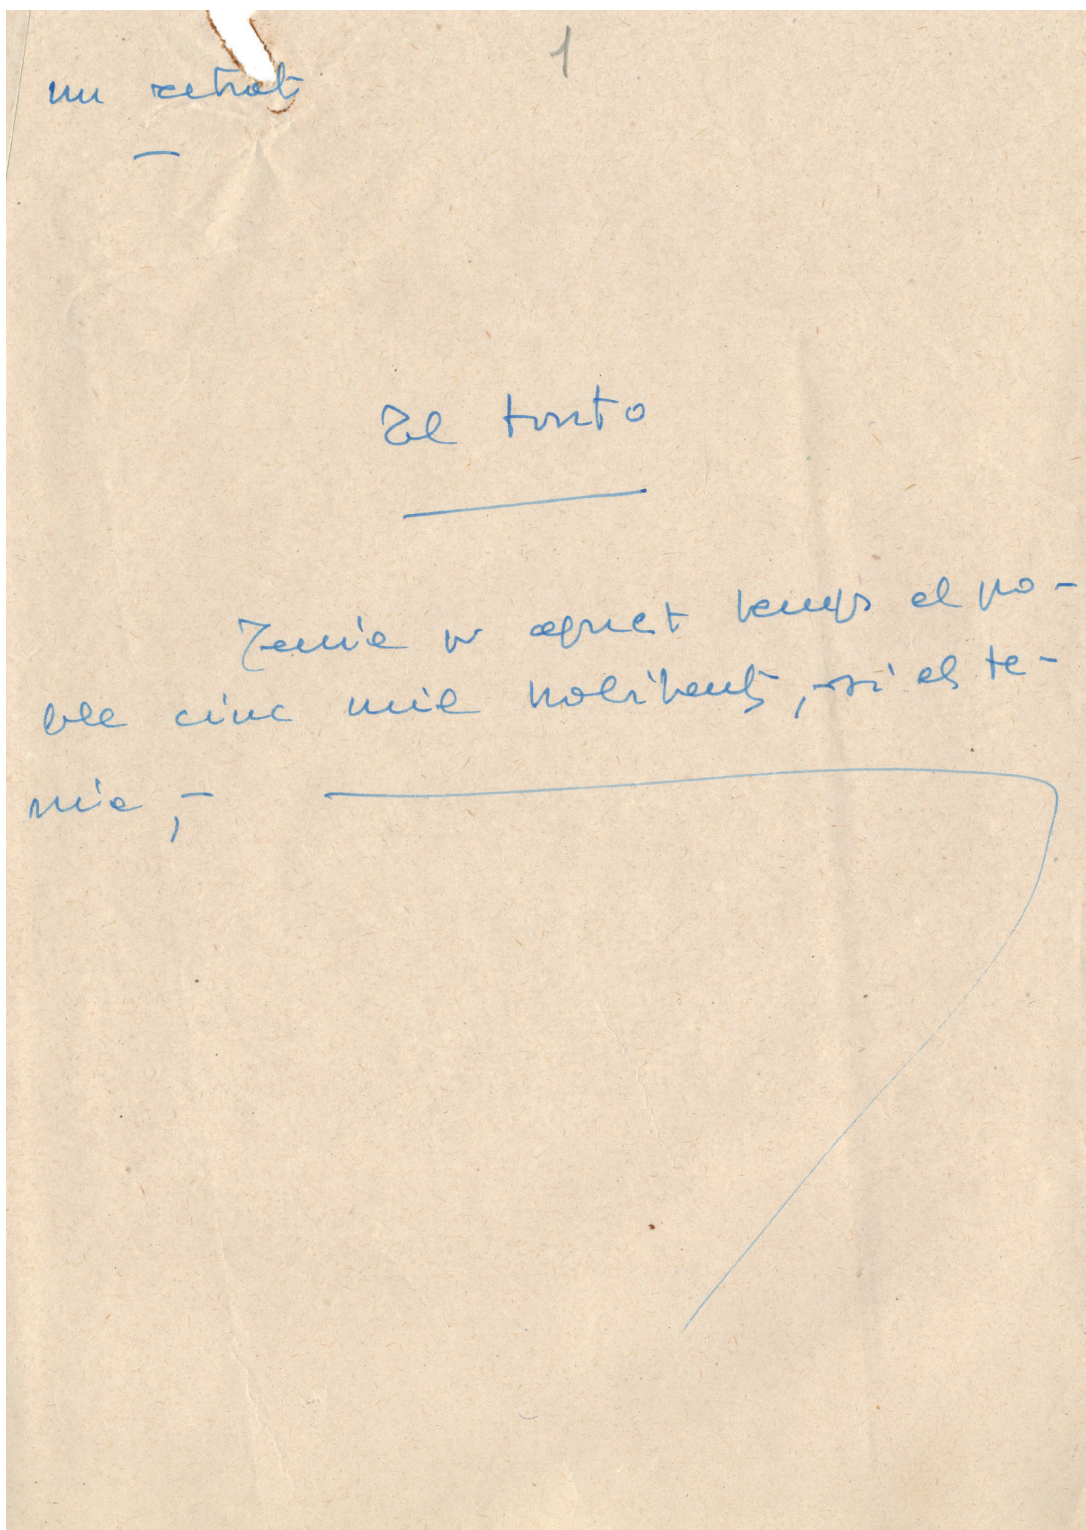 1
un retrat
El tonto
Tenia en aquest temps el po-
ble cinc mil habitants, si els te-
nia,-